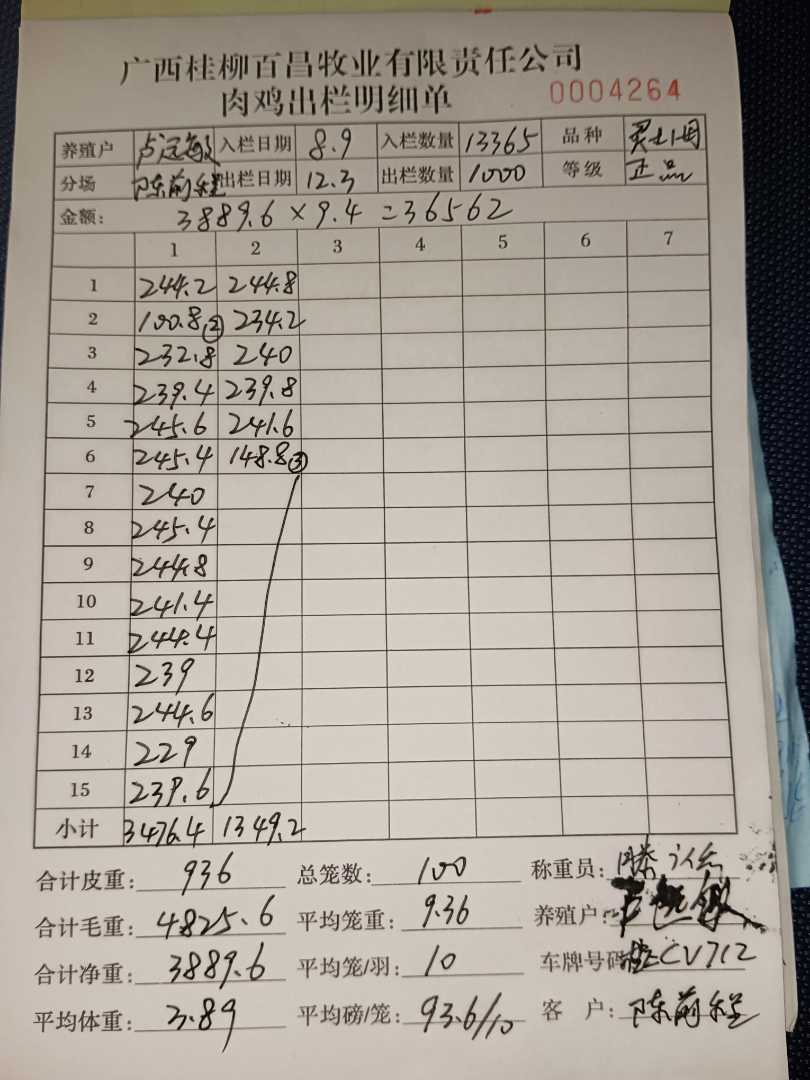 广西桂柳百昌牧业有限责任公司
肉鸡出栏明细单 0004264
养殖户 卢冠敏 入栏日期 8.9 入栏数量 13365 品种 灵山
分场 陈前程 出栏日期 12.3 出栏数量 1000 等级 正品
金额: 3889.6 × 9.4 = 36562
1 2 3 4 5 6 7
1 244.2 244.8
2 100.8② 234.2
3 232.8 240
4 239.4 239.8
5 245.6 241.6
6 245.4 148.8③
7 240
8 245.4
9 244.8
10 241.4
11 244.4
12 239
13 244.6
14 229
15 239.6
小计 3476.4 1349.2
合计皮重: 936 总笼数: 100 称重员: 滕
合计毛重: 4825.6 平均笼重: 9.36 养殖户: 卢冠敏
合计净重: 3889.6 平均笼/羽: 10 车牌号码 桂CV712
平均体重: 3.89 平均磅/笼: 93.6/10 客户: 陈前程